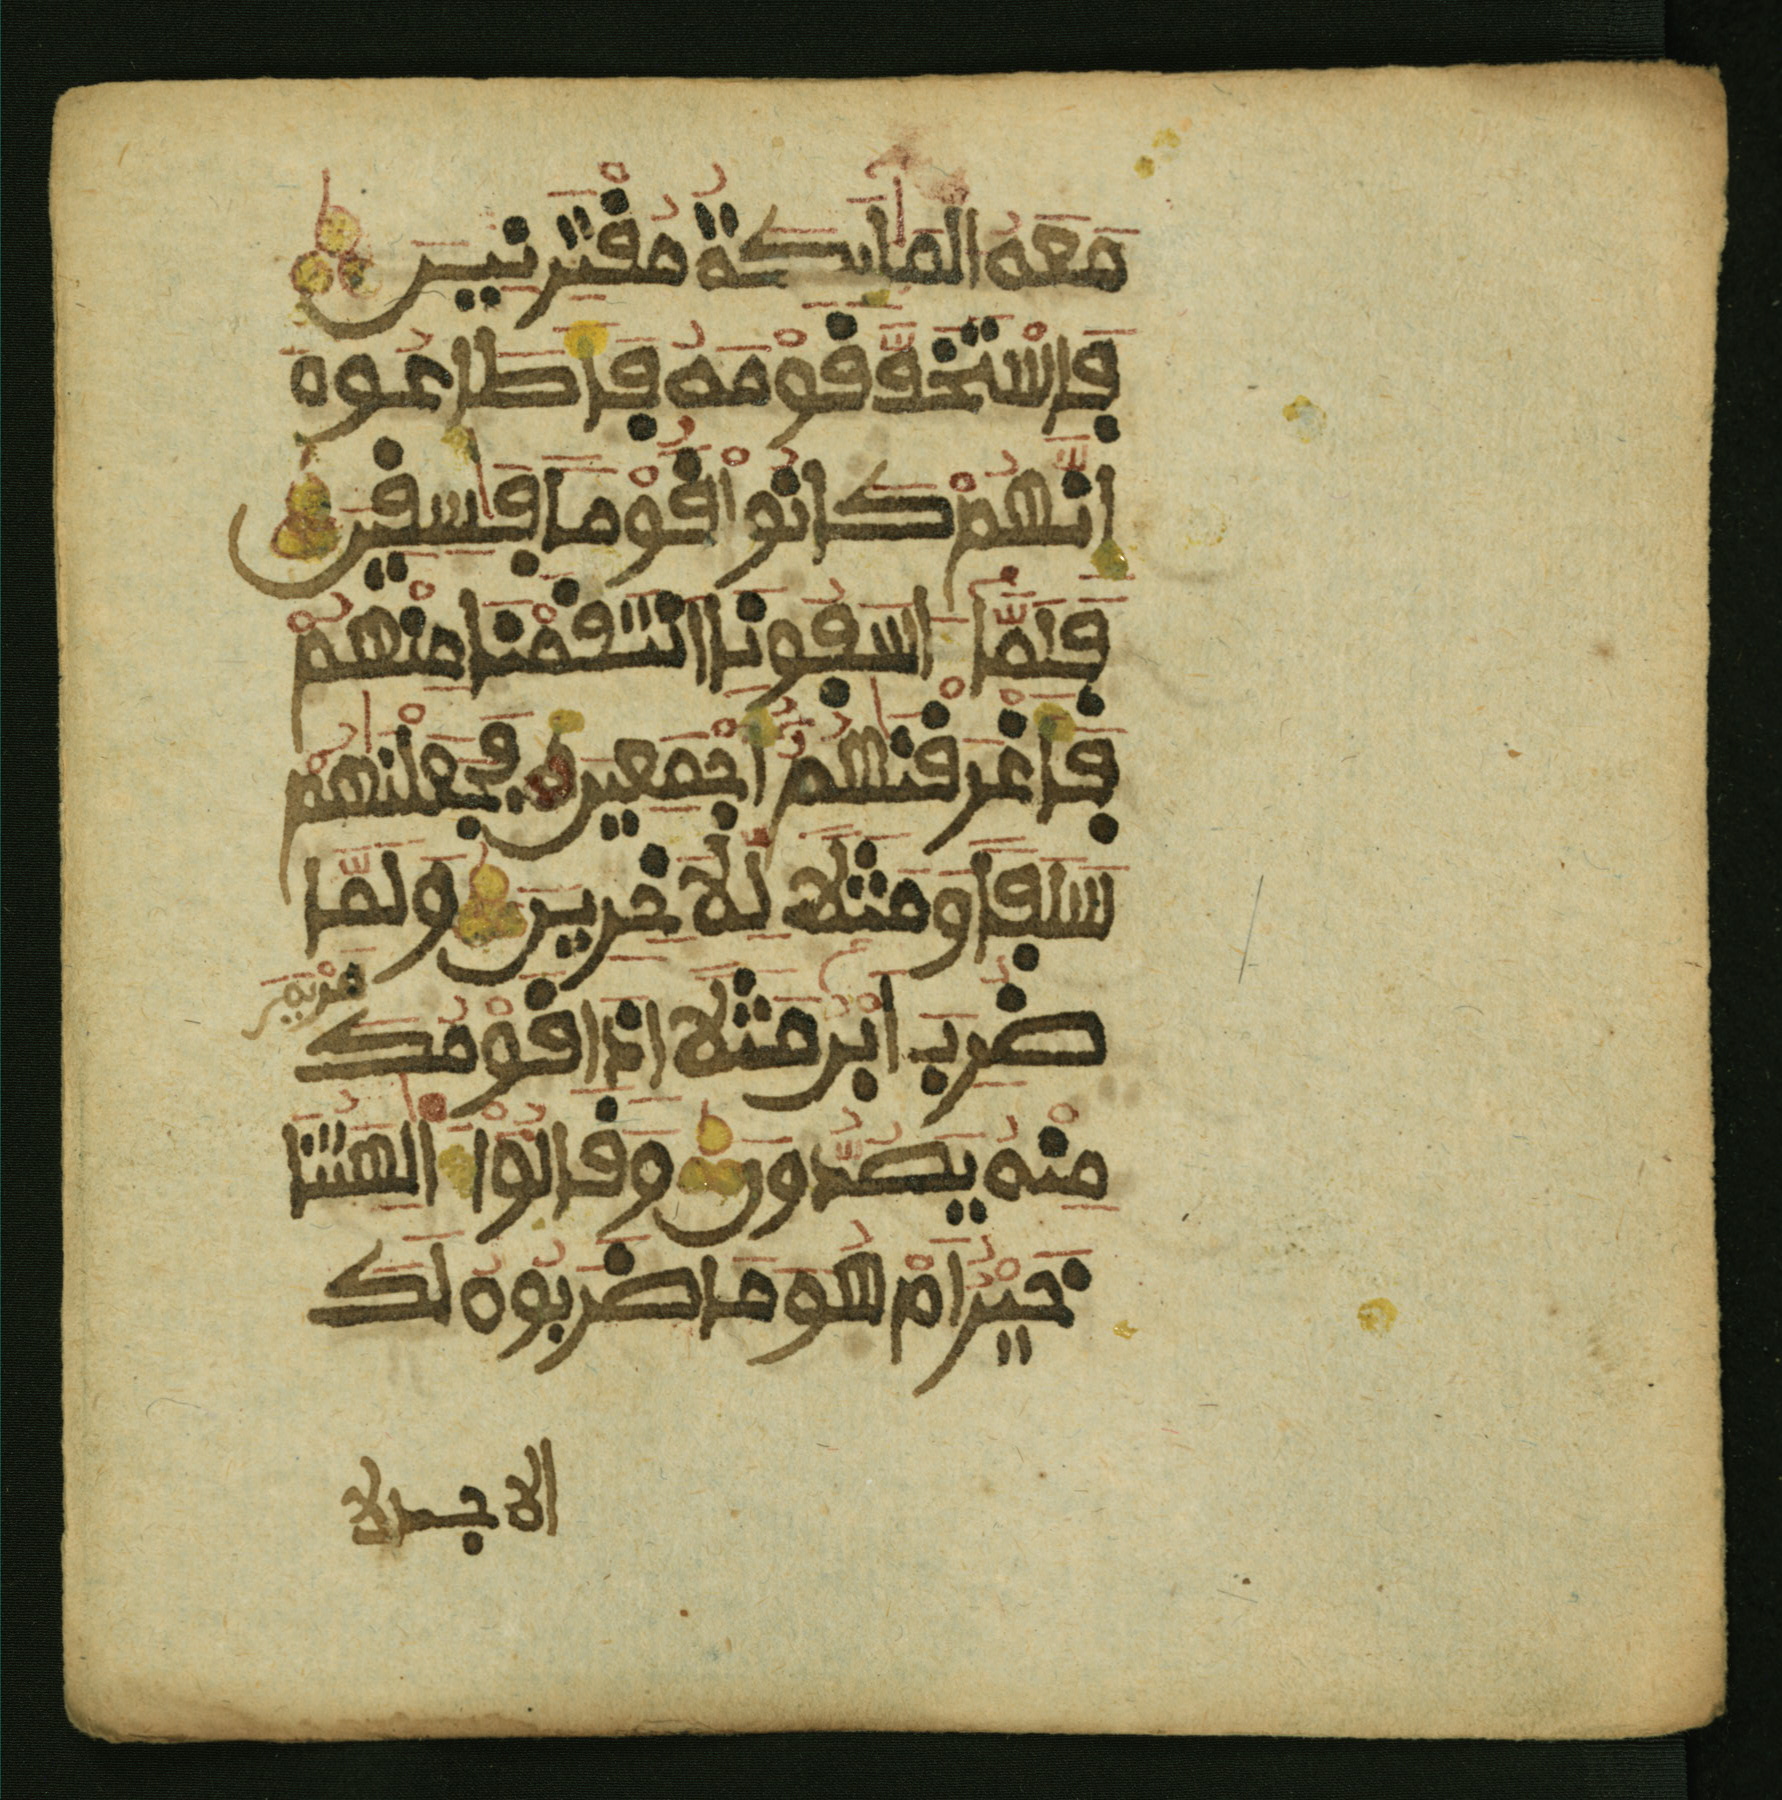 مَعَهُ الْمَلَٰٓئِكَةُ مُقْتَرِنِينَ
فَاسْتَخَفَّ قَوْمَهُ فَأَطَاعُوهُ
إِنَّهُمْ كَانُوا قَوْمًا فَٰسِقِينَ
فَلَمَّآ ءَاسَفُونَا انتَقَمْنَا مِنْهُمْ
فَأَغْرَقْنَٰهُمُ أَجْمَعِينَ فَجَعَلْنَٰهُمْ
سَلَفًا وَمَثَلًا لِّلَاخِرِينَ وَلَمَّا
مَرْيَمَ
ضُرِبَ ابْنُ مَثَلًا إِذَا قَوْمُكَ
مِنْهُ يَصُدُّونَ وَقَالُوا ءَالِهَتُنَا
خَيْرٌ أَمْ هُوَ مَا ضَرَبُوهُ لَكَ
الا جدلا